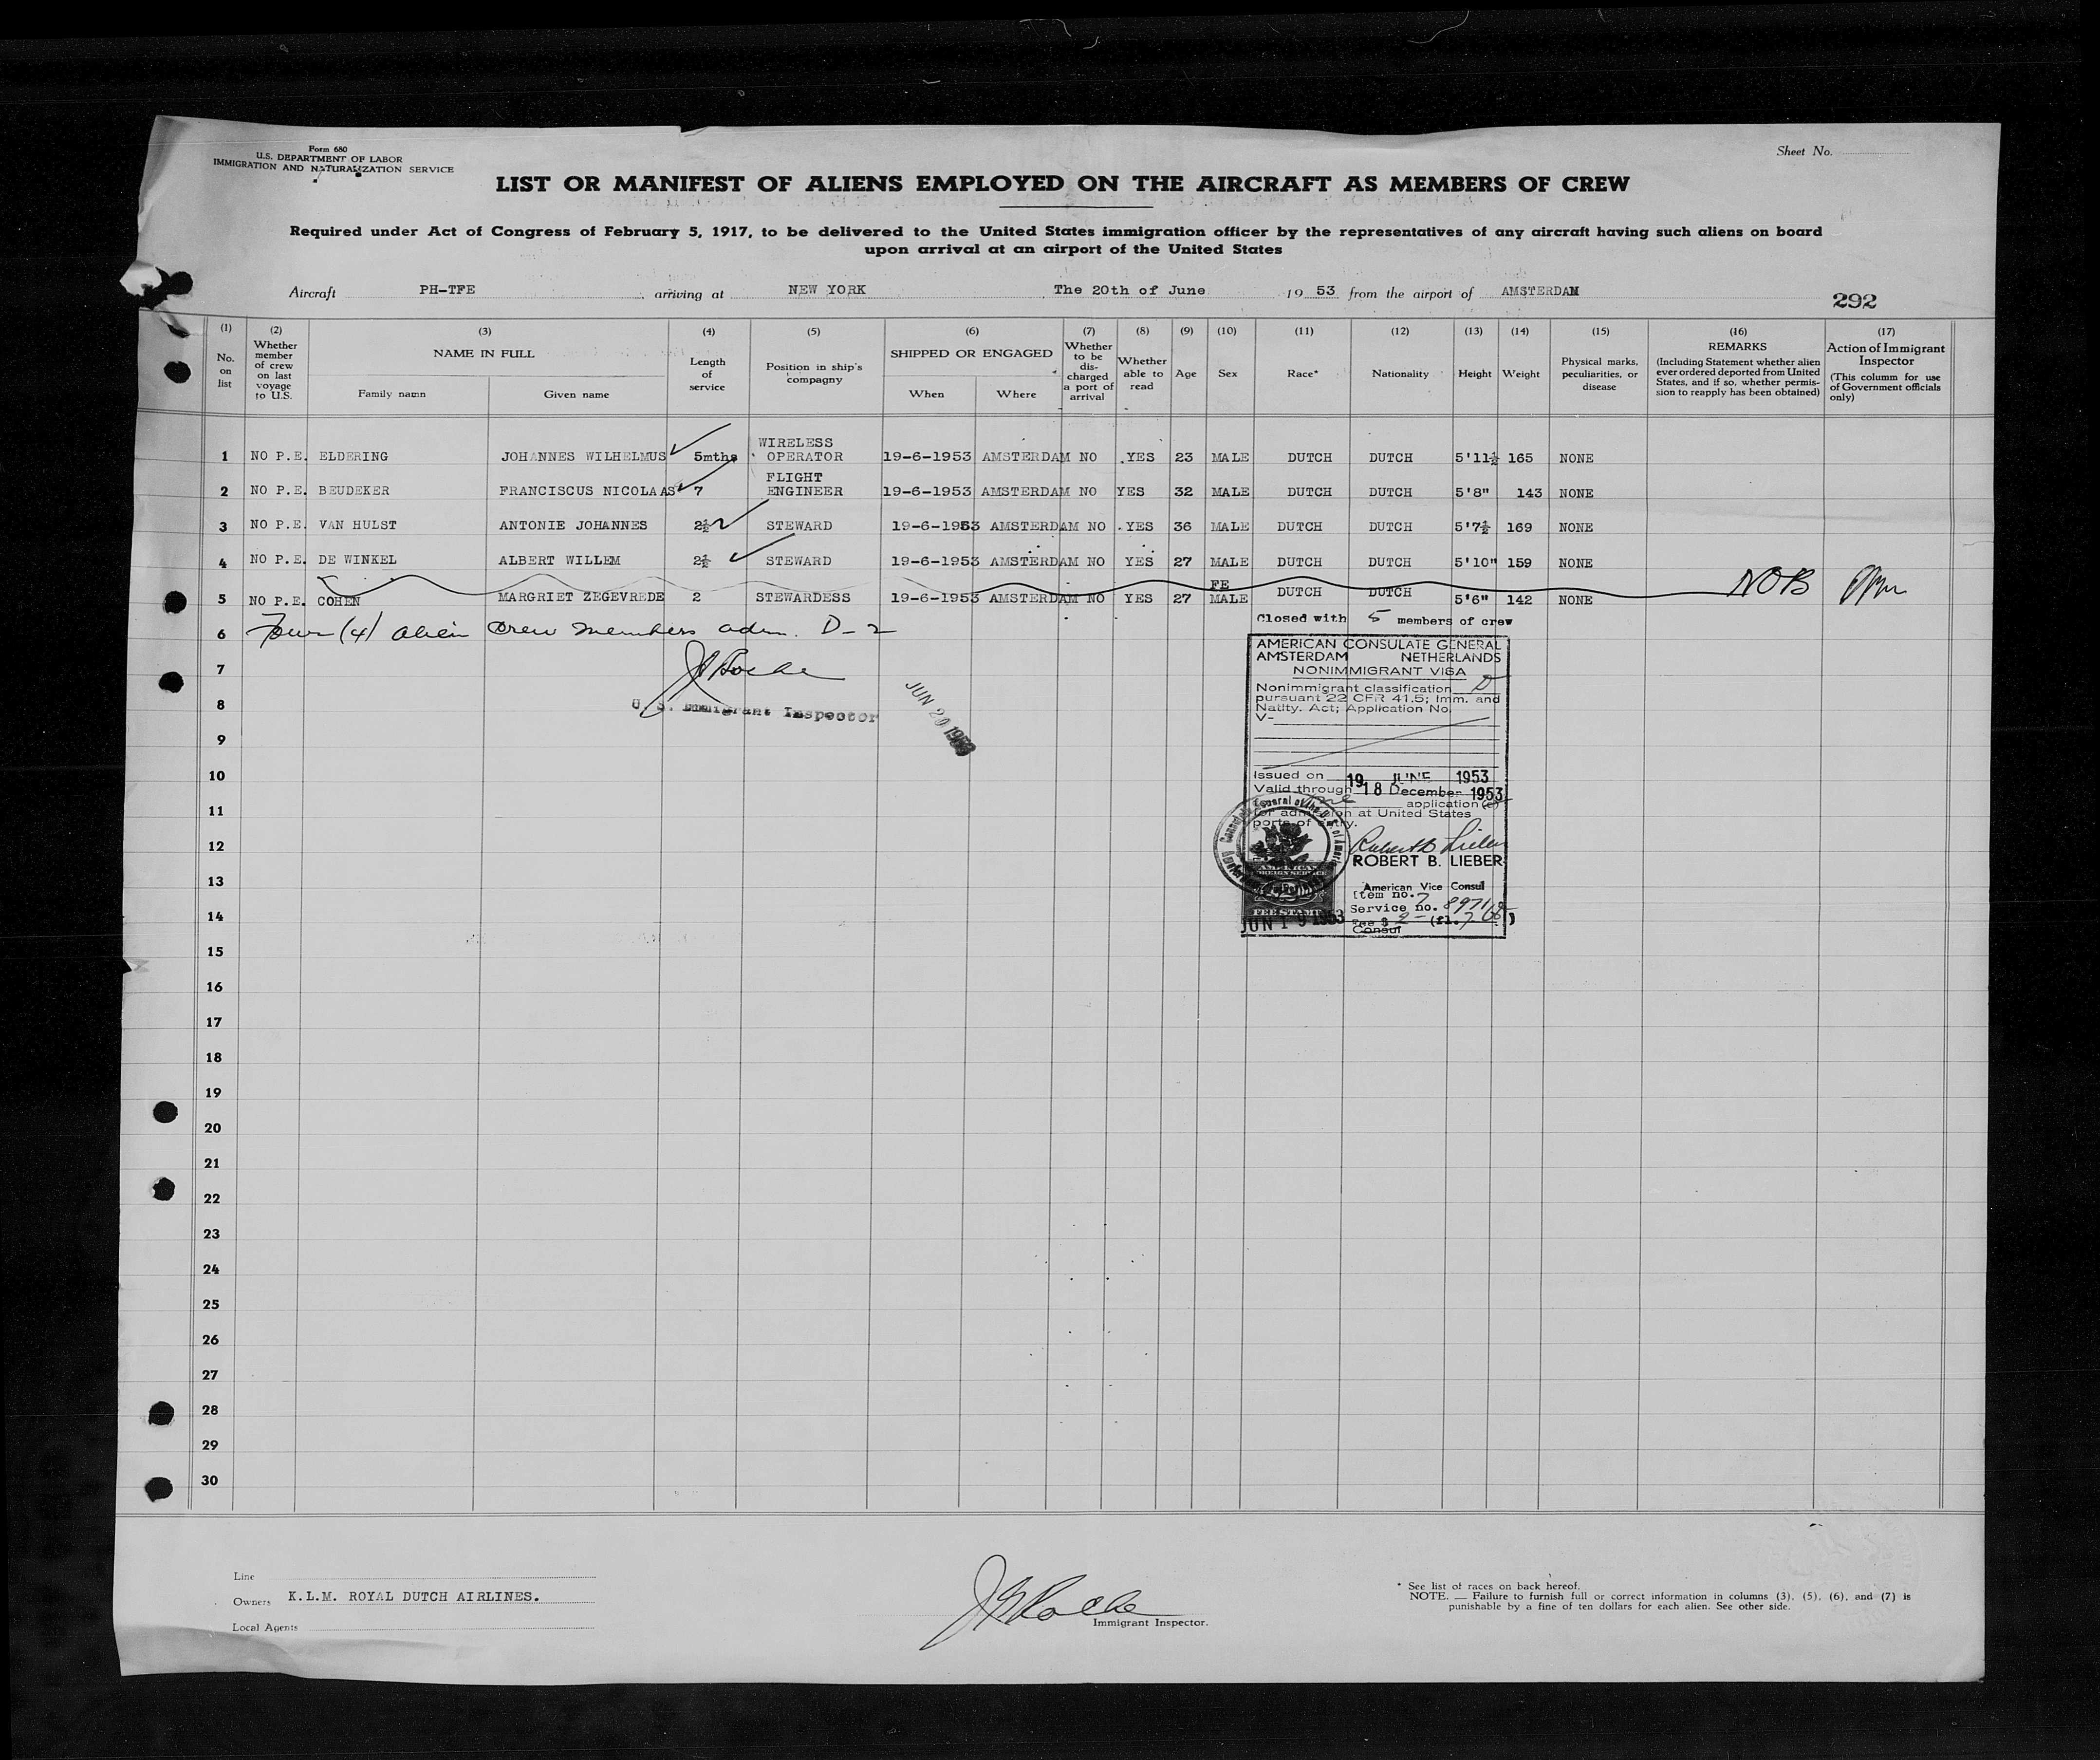 Form 680
U.S. DEPARTMENT OF LABOR
IMMIGRATION AND NATURALIZATION SERVICE
Sheet No.
LIST OR MANIFEST OF ALIENS EMPLOYED ON THE AIRCRAFT AS MEMBERS OF CREW
Required under Act of Congress of February 5, 1917, to be delivered to the United States immigration officer by the representatives of any aircraft having such aliens on board
upon arrival at an airport of the United States
Aircraft PH-TFE arriving at NEW YORK The 20th of June 19 53 from the airport of AMSTERDAM
292
(1) (2) (3) (4) (5) (6) (7) (8) (9) (10) (11) (12) (13) (14) (15) (16) (17)
No. on list
Whether member of crew on last voyage to U.S.
NAME IN FULL
Family namn
Given name
Length of service
Position in ship's compagny
SHIPPED OR ENGAGED
When
Where
Whether to be dis-charged a port of arrival
Whether able to read
Age
Sex
Race*
Nationality
Height
Weight
Physical marks, peculiarities, or disease
REMARKS
(Including Statement whether alien ever ordered deported from United States, and if so, whether permis-sion to reapply has been obtained)
Action of Immigrant Inspector
(This column for use of Government officials only)
1 NO P.E. ELDERING JOHANNES WILHELMUS 5mths WIRELESS OPERATOR 19-6-1953 AMSTERDAM NO YES 23 MALE DUTCH DUTCH 5'11½ 165 NONE
2 NO P.E. BEUDEKER FRANCISCUS NICOLAAS 7 FLIGHT ENGINEER 19-6-1953 AMSTERDAM NO YES 32 MALE DUTCH DUTCH 5'8" 143 NONE
3 NO P.E. VAN HULST ANTONIE JOHANNES 2½ STEWARD 19-6-1953 AMSTERDAM NO YES 36 MALE DUTCH DUTCH 5'7½ 169 NONE
4 NO P.E. DE WINKEL ALBERT WILLEM 2½ STEWARD 19-6-1953 AMSTERDAM NO YES 27 MALE DUTCH DUTCH 5'10" 159 NONE
5 NO P.E. COHEN MARGRIET ZEGEVREDE 2 STEWARDESS 19-6-1953 AMSTERDAM NO YES 27 FE MALE DUTCH DUTCH 5'6" 142 NONE NOB
6 Four (4) alien crew members adm. D-2
Closed with 5 members of crew
7 JGRoche
8 U.S. Immigrant Inspector
JUN 20 1953
AMERICAN CONSULATE GENERAL
AMSTERDAM NETHERLANDS
NONIMMIGRANT VISA
Nonimmigrant classification D
pursuant 22 CFR 41.5; Imm. and
Natlty. Act; Application No.
V-
Issued on 19 JUNE 1953
Valid through 18 December 1953
application (s)
for admission at United States
ports of entry.
ROBERT B. LIEBER
American Vice Consul
Item no. 7
Service no.
Fee $ 2-
Consul
AMERICAN
FOREIGN SERVICE
FEE STAMP
JUN 19 1953
9
10
11
12
13
14
15
16
17
18
19
20
21
22
23
24
25
26
27
28
29
30
Line
Owners K.L.M. ROYAL DUTCH AIRLINES.
Local Agents
JGRoche
Immigrant Inspector.
* See list of races on back hereof.
NOTE. — Failure to furnish full or correct information in columns (3), (5), (6), and (7) is
punishable by a fine of ten dollars for each alien. See other side.